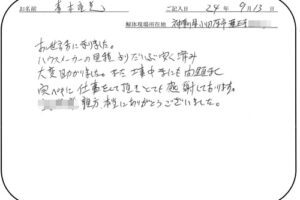 お名前 ご記入日 24年 9月13日
解体現場所在地 神奈川県小田原市
お世話になりました。
ハウスメーカーの見積よりだいぶ安く済み
大変助かりました。また工事中にも
仕事をして頂きとても感謝しております。
親方本当にありがとうございました。